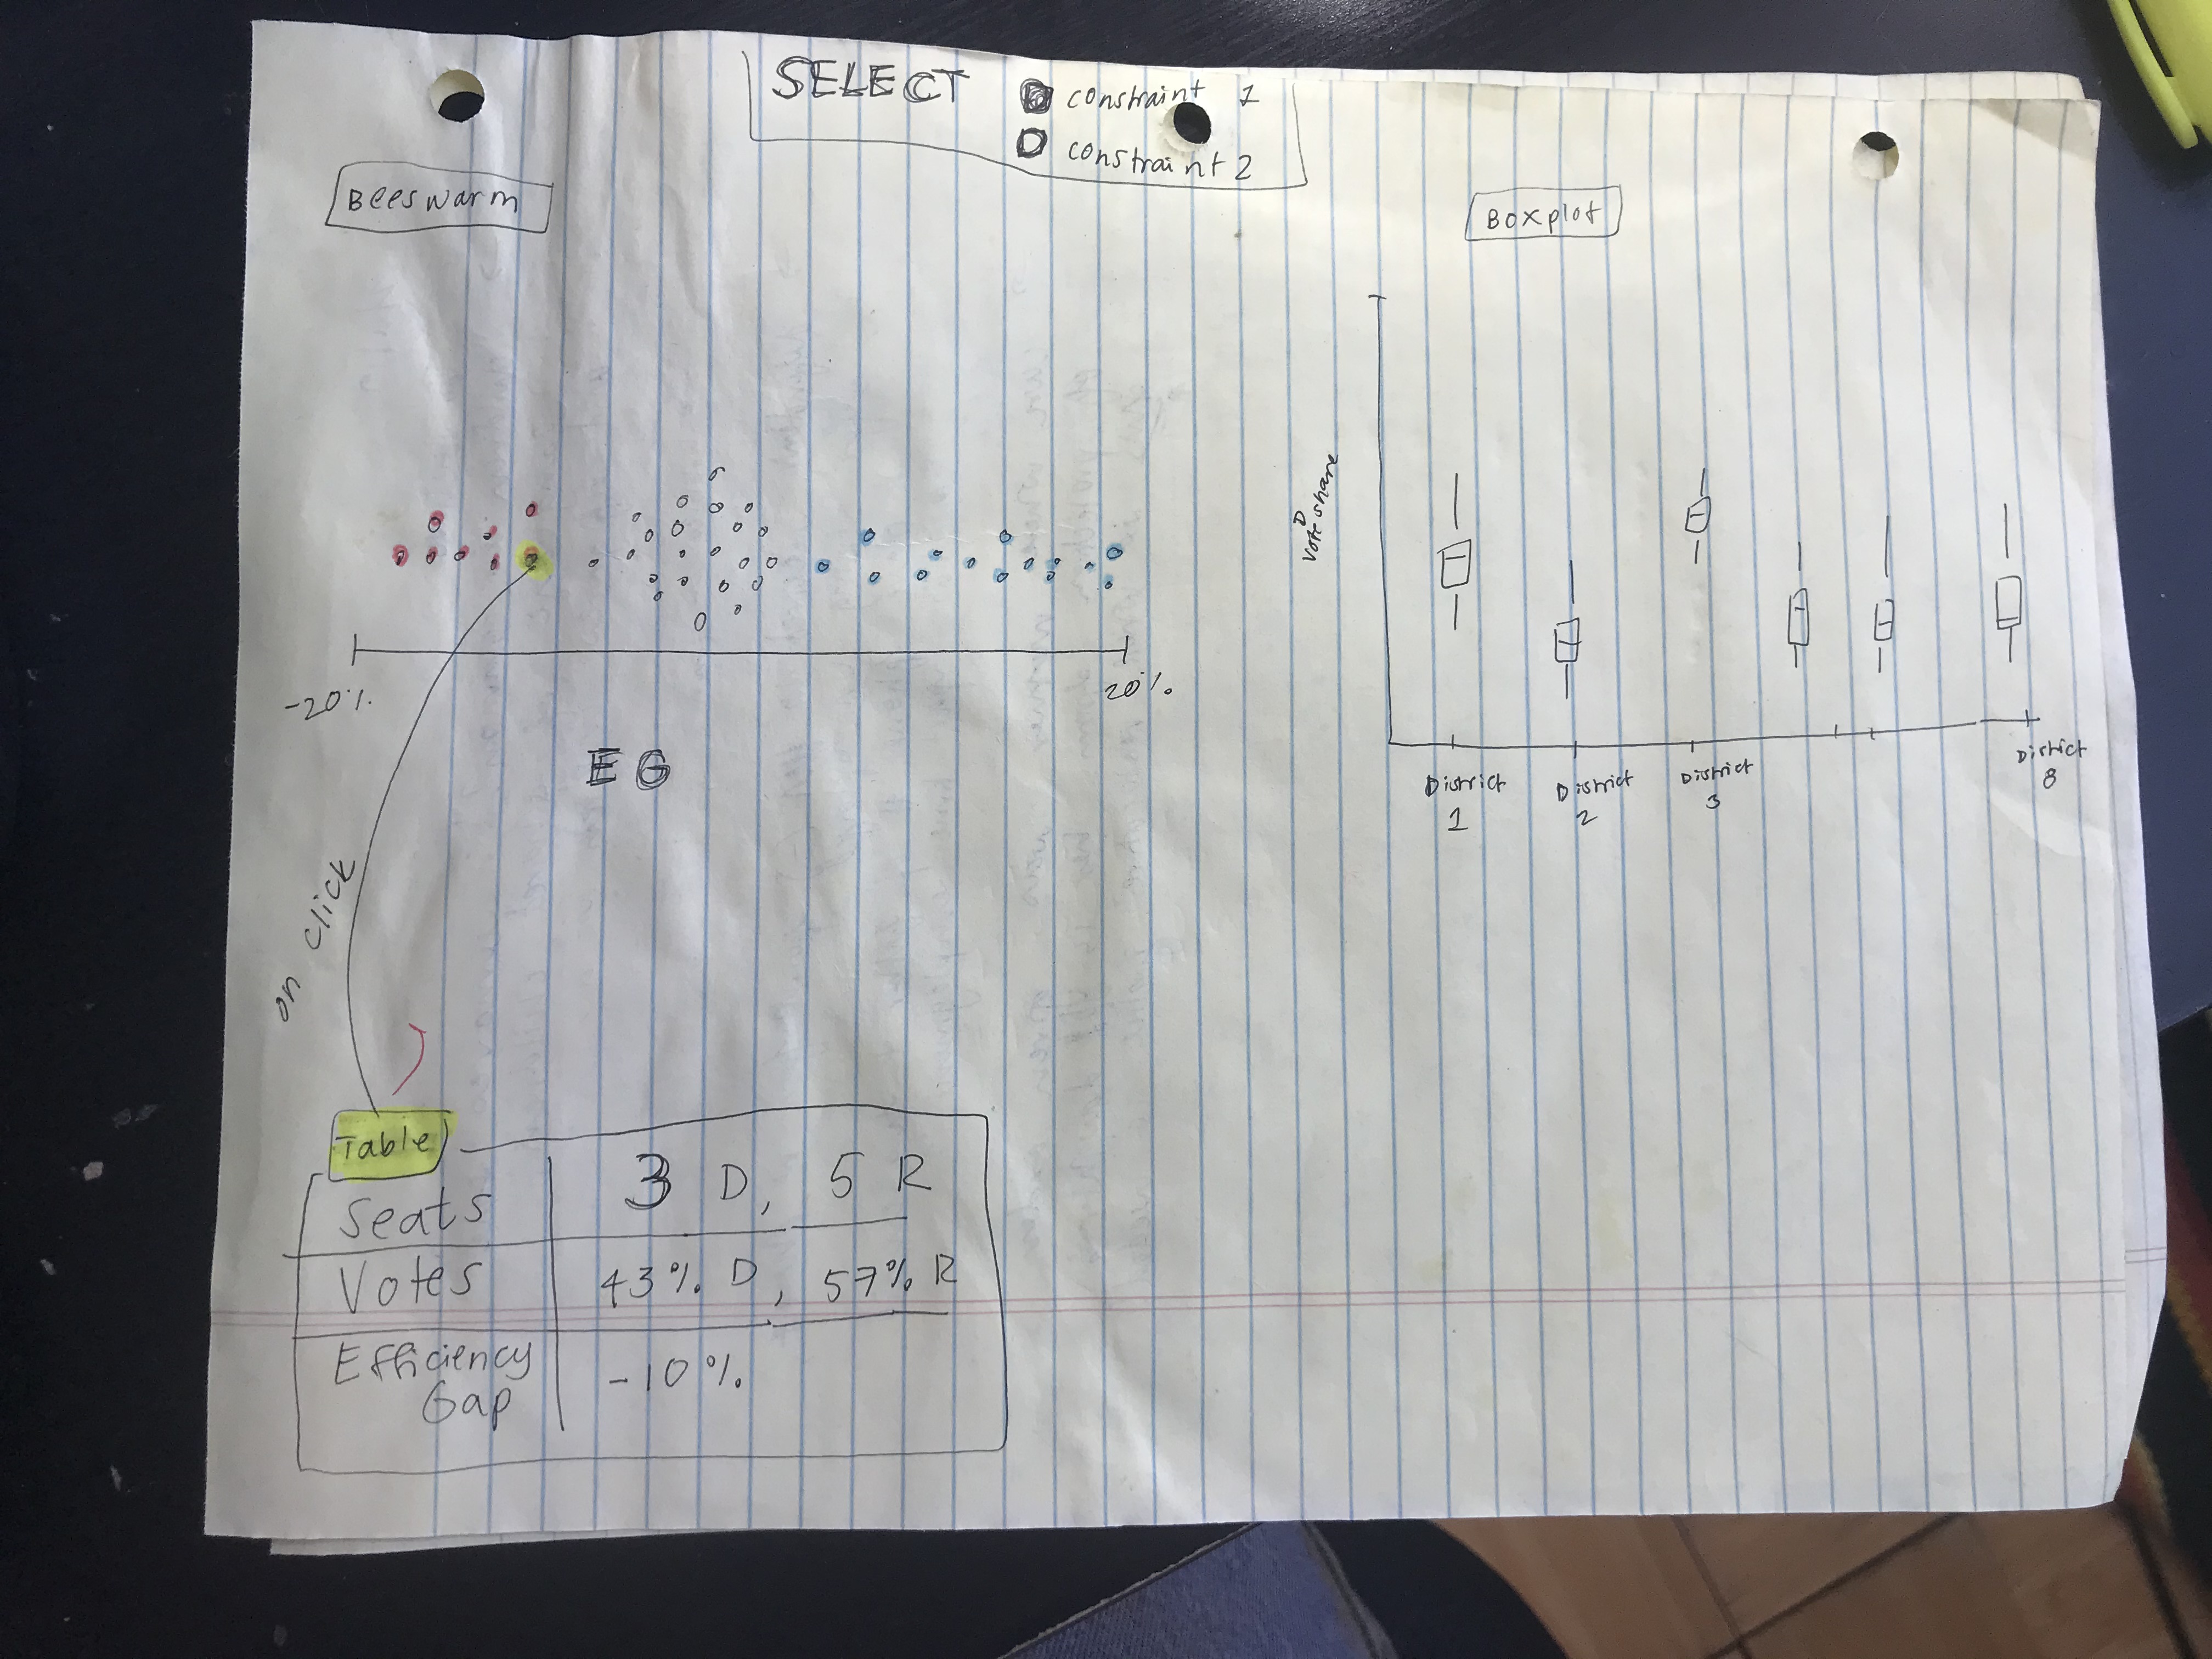 SELECT
constraint 1
constraint 2
Beeswarm
-20%
20%
EG
on click
Table
Seats 3 D, 5 R
Votes 43% D, 57% R
Efficiency
Gap -10%
Boxplot
D
vote share
District
1
District
2
District
3
District
8